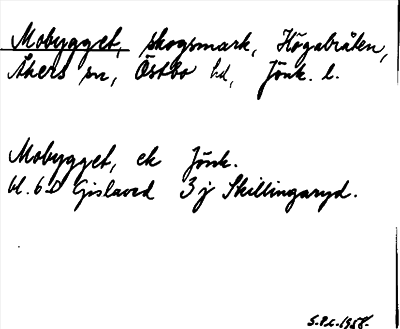 Mobygget, skogsmark, Högabråten,
Åkers sn, Östbo hd, Jönk. l.
Mobygget, ek Jönk.
bl. 6d Gislaved 3 j Skillingaryd.
S.P.L. 1958.